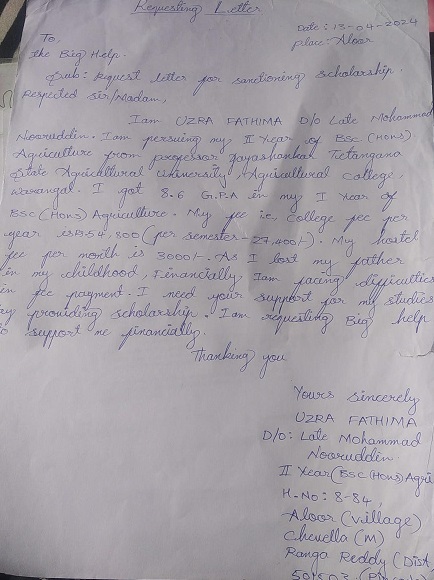 Requesting Letter
Date: 13-04-2024
place: Aloor
To,
the Big Help.
Sub: Request letter for sanctioning scholarship.
Respected Sir/Madam,
Iam UZRA FATHIMA D/o Late Mohammad
Nooruddin. Iam persuing my II Year of BSc (Hons).
Agriculture from professor Jayashankar Telangana
State Agricultural University, Agricultural College,
Warangal. I got 8.6 G.P.A in my I Year of
BSC (Hons) Agriculture. My fee i.e., College fee per
year is 54,800 (per semester - 27,400/-). My hostel
fee per month is 3000/-. As I lost my father
in my childhood, Financially Iam facing difficulties
in fee payment. I need your support for my studies
by providing scholarship. Iam requesting Big help
to support me financially.
Thanking you
Yours sincerely
UZRA FATHIMA
D/O: Late Mohammad
Nooruddin.
II Year (BSC (Hons) Agri
H.No: 8-84,
Aloor (village)
Chevella (M)
Ranga Reddy (Dist
501503